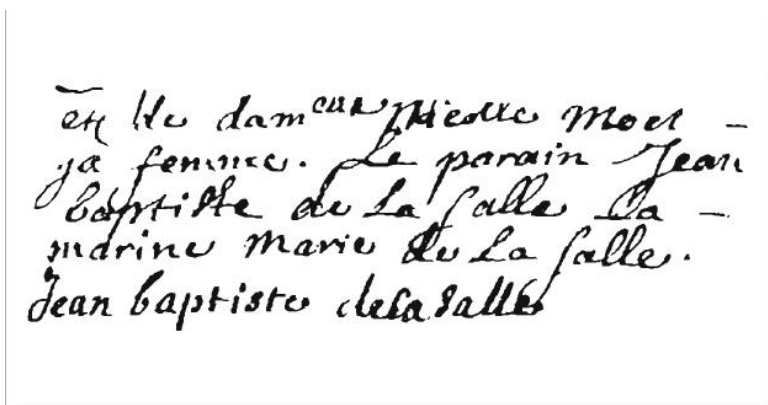 et de dam^elle Nicolle Moet -
sa femme. Le parain Jean
baptiste de La Salle La -
marine Marie de La Salle.
Jean baptiste delaSalle